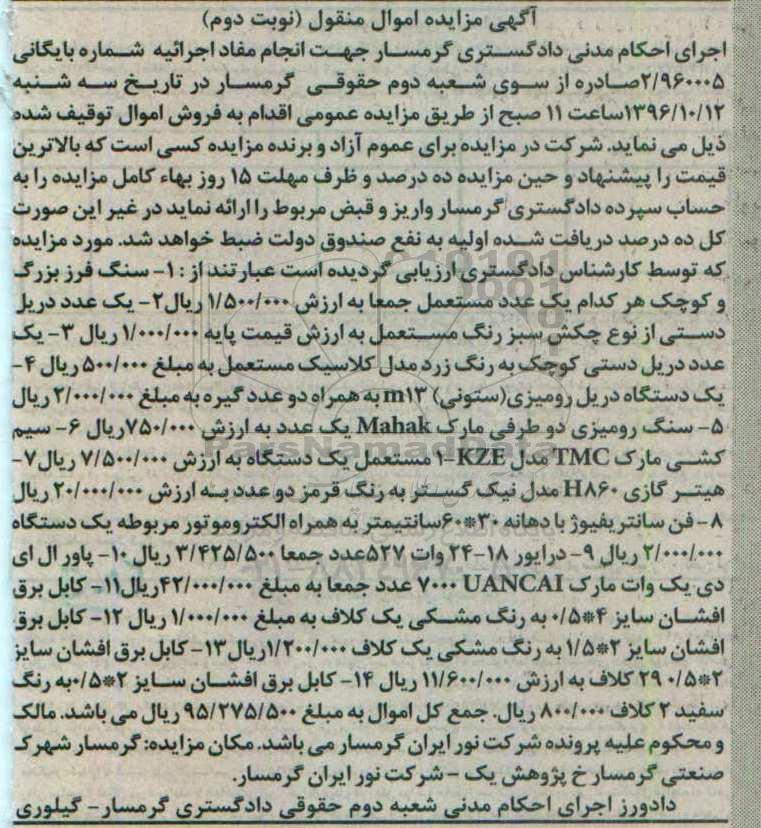 آگهی مزایده اموال منقول (نوبت دوم)
اجرای احکام مدنی دادگستری گرمسار جهت انجام مفاد اجرائیه شماره بایگانی
۲/۹۶۰۰۰۵صادره از سوی شعبه دوم حقوقی گرمسار در تاریخ سه شنبه
۱۳۹۶/۱۰/۱۲ساعت ۱۱ صبح از طریق مزایده عمومی اقدام به فروش اموال توقیف شده
ذیل می نماید. شرکت در مزایده برای عموم آزاد و برنده مزایده کسی است که بالاترین
قیمت را پیشنهاد و حین مزایده ده درصد و ظرف مهلت ۱۵ روز بهاء کامل مزایده را به
حساب سپرده دادگستری گرمسار واریز و قبض مربوط را ارائه نماید در غیر این صورت
کل ده درصد دریافت شده اولیه به نفع صندوق دولت ضبط خواهد شد. مورد مزایده
که توسط کارشناس دادگستری ارزیابی گردیده است عبارتند از : ۱- سنگ فرز بزرگ
و کوچک هر کدام یک عدد مستعمل جمعا به ارزش ۱/۵۰۰/۰۰۰ ریال۲- یک عدد دریل
دستی از نوع چکش سبز رنگ مستعمل به ارزش قیمت پایه ۱/۰۰۰/۰۰۰ ریال ۳- یک
عدد دریل دستی کوچک به رنگ زرد مدل کلاسیک مستعمل به مبلغ ۵۰۰/۰۰۰ ریال ۴-
یک دستگاه دریل رومیزی(ستونی) m۱۳ به همراه دو عدد گیره به مبلغ ۲/۰۰۰/۰۰۰ ریال
۵- سنگ رومیزی دو طرفی مارک Mahak یک عدد به ارزش ۷۵۰/۰۰۰ریال ۶- سیم
کشی مارک TMC مدل KZE-۱ مستعمل یک دستگاه به ارزش ۷/۵۰۰/۰۰۰ ریال۷-
هیتر گازی H۸۶۰ مدل نیک گستر به رنگ قرمز دو عدد به ارزش ۲۰/۰۰۰/۰۰۰ ریال
۸- فن سانتریفیوژ با دهانه ۳۰*۶۰سانتیمتر به همراه الکتروموتور مربوطه یک دستگاه
۲/۰۰۰/۰۰۰ ریال ۹- درایور ۱۸-۲۴ وات ۵۲۷عدد جمعا ۳/۴۲۵/۵۰۰ ریال ۱۰- پاور ال ای
دی یک وات مارک UANCAI ۷۰۰۰ عدد جمعا به مبلغ ۴۲/۰۰۰/۰۰۰ریال۱۱- کابل برق
افشان سایز ۴*۰/۵ به رنگ مشکی یک کلاف به مبلغ ۱/۰۰۰/۰۰۰ ریال ۱۲- کابل برق
افشان سایز ۲*۱/۵ به رنگ مشکی یک کلاف ۱/۲۰۰/۰۰۰ریال۱۳- کابل برق افشان سایز
۲*۰/۵ ۲۹ کلاف به ارزش ۱۱/۶۰۰/۰۰۰ ریال ۱۴- کابل برق افشان سایز ۲*۰/۵به رنگ
سفید ۲ کلاف ۸۰۰/۰۰۰ ریال. جمع کل اموال به مبلغ ۹۵/۲۷۵/۵۰۰ ریال می باشد. مالک
و محکوم علیه پرونده شرکت نور ایران گرمسار می باشد. مکان مزایده: گرمسار شهرک
صنعتی گرمسار خ پژوهش یک - شرکت نور ایران گرمسار.
دادورز اجرای احکام مدنی شعبه دوم حقوقی دادگستری گرمسار- گیلوری